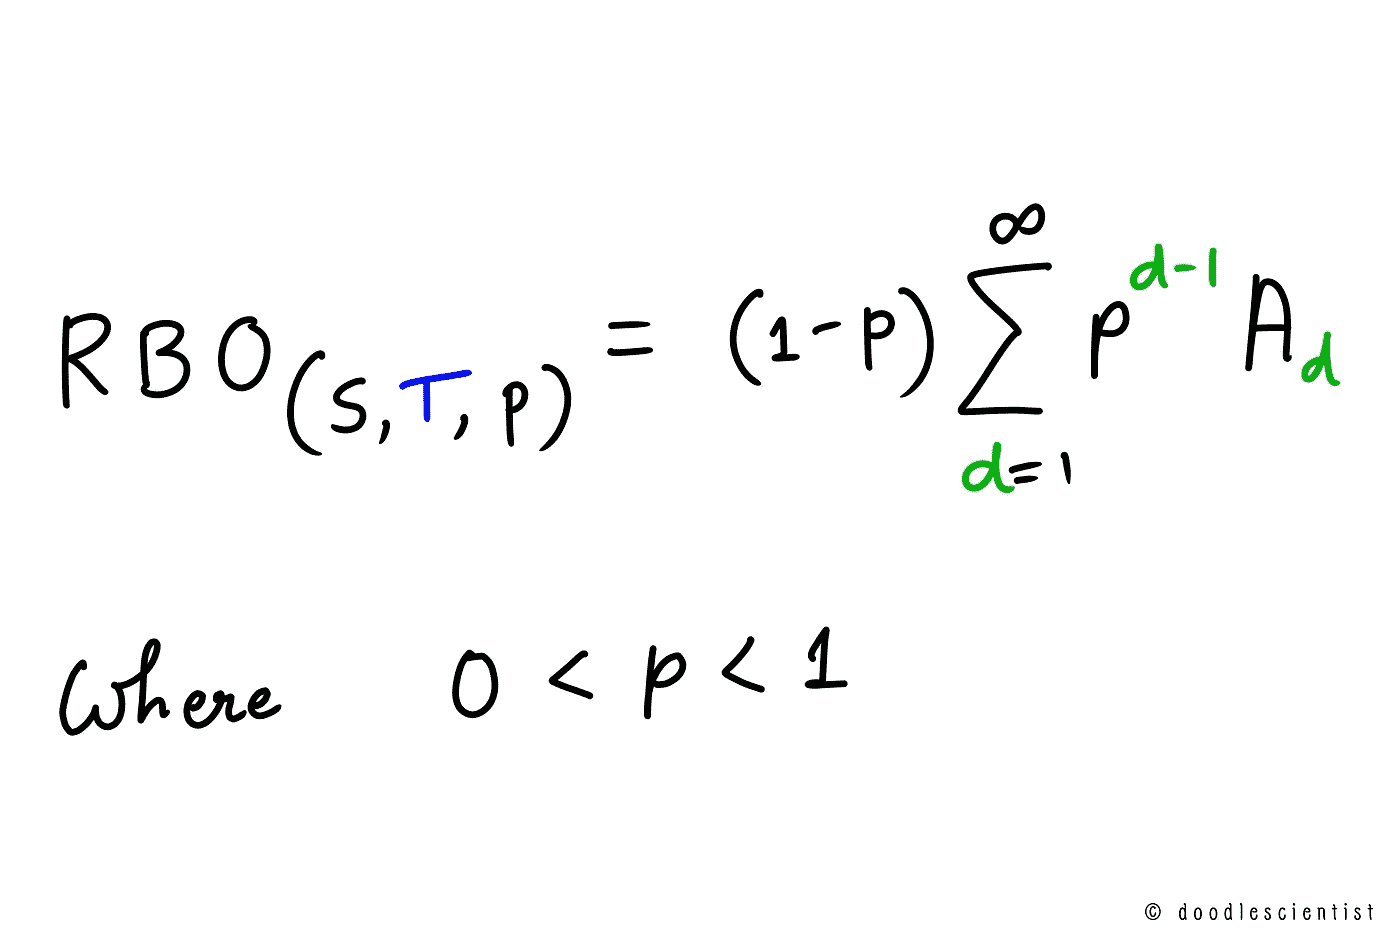 RBO(S,T,p) = (1-p) ∞ ∑ d=1 p^{d-1} A_d
Where 0 < p < 1
© doodlescientist